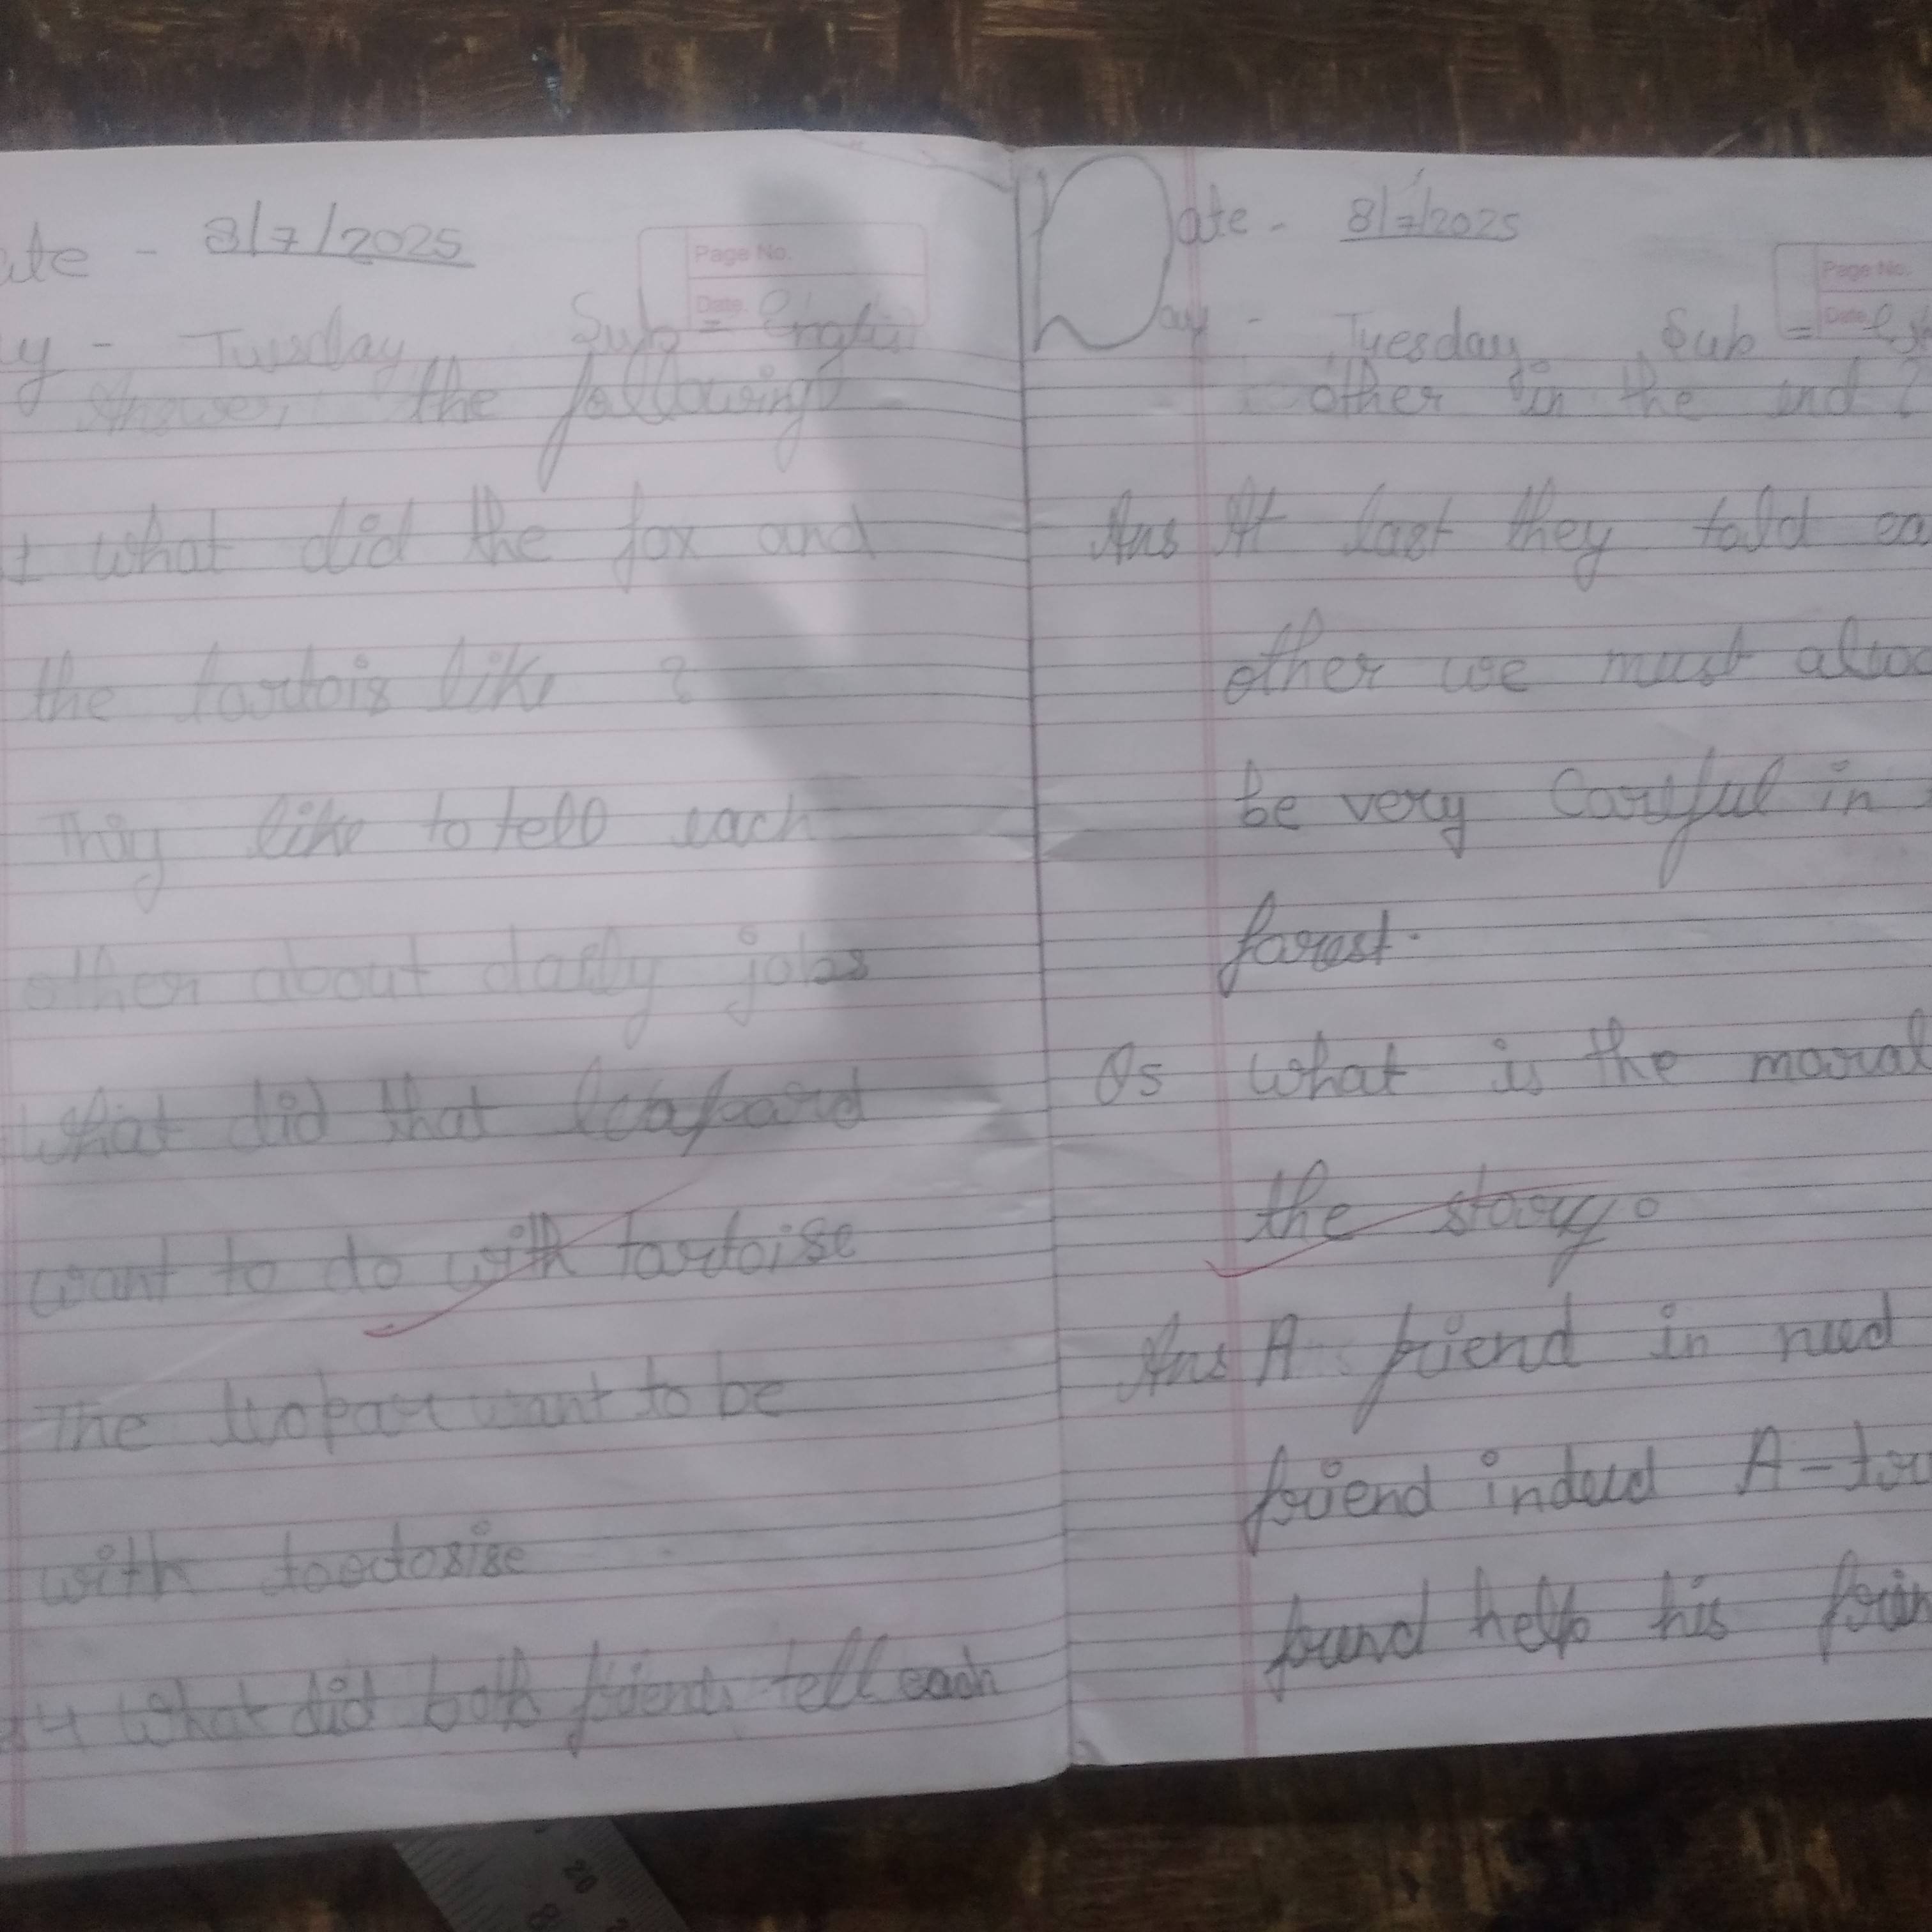 ate - 8/7/2025
Page No.
Date.
y - Tuesday Sub = English
Answer the following
1 what did the fox and
the tortois like ?
They like to tell each
other about daily jobs
what did that leapard
want to do with tortoise
The leopart want to be
with tootosise
4 what did both friends tell each
Date - 8/7/2025
Page No.
Date.
Day - Tuesday Sub =
other in the end ?
Ans At last they told ea
other we must alwa
be very careful in
forest.
Q5 what is the moral
the story.
Ans A friend in need
friend indeed A - tru
friend help his frien